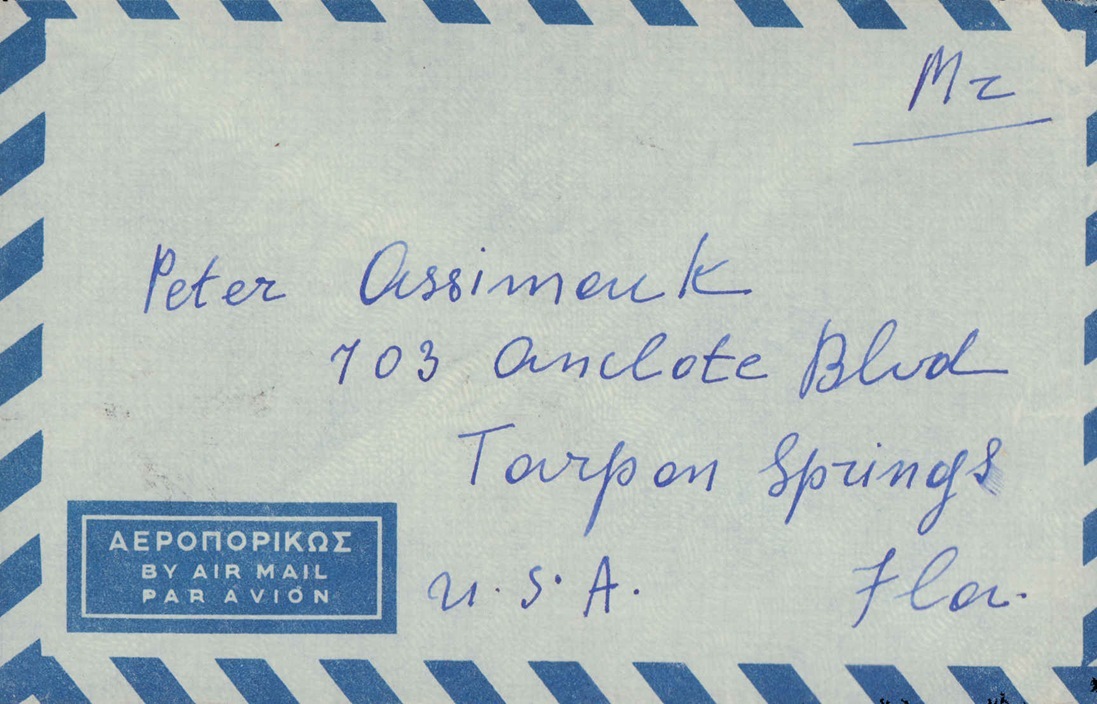 Mr
Peter Assimack
703 Anclote Blvd
Tarpon Springs
U.S.A. Fla.
ΑΕΡΟΠΟΡΙΚΩΣ
BY AIR MAIL
PAR AVION